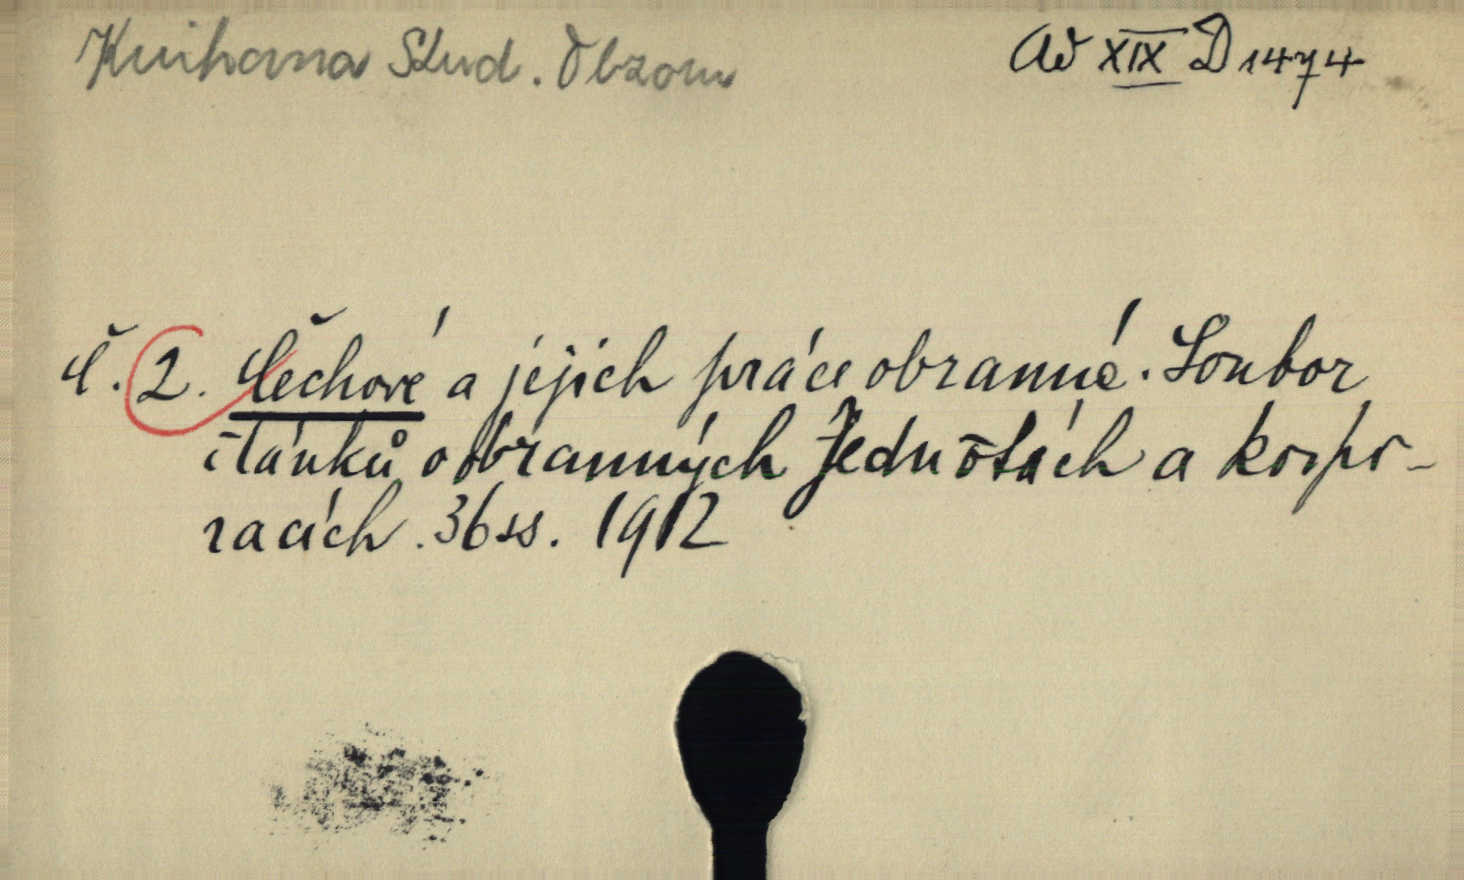 Knihovna Stud. Obzoru
Ad XIX D 1474
č. 2. Čechové a jejich práce obranné. Soubor
článků o obranných Jednotách a korpo-
racích. 36 ss. 1912